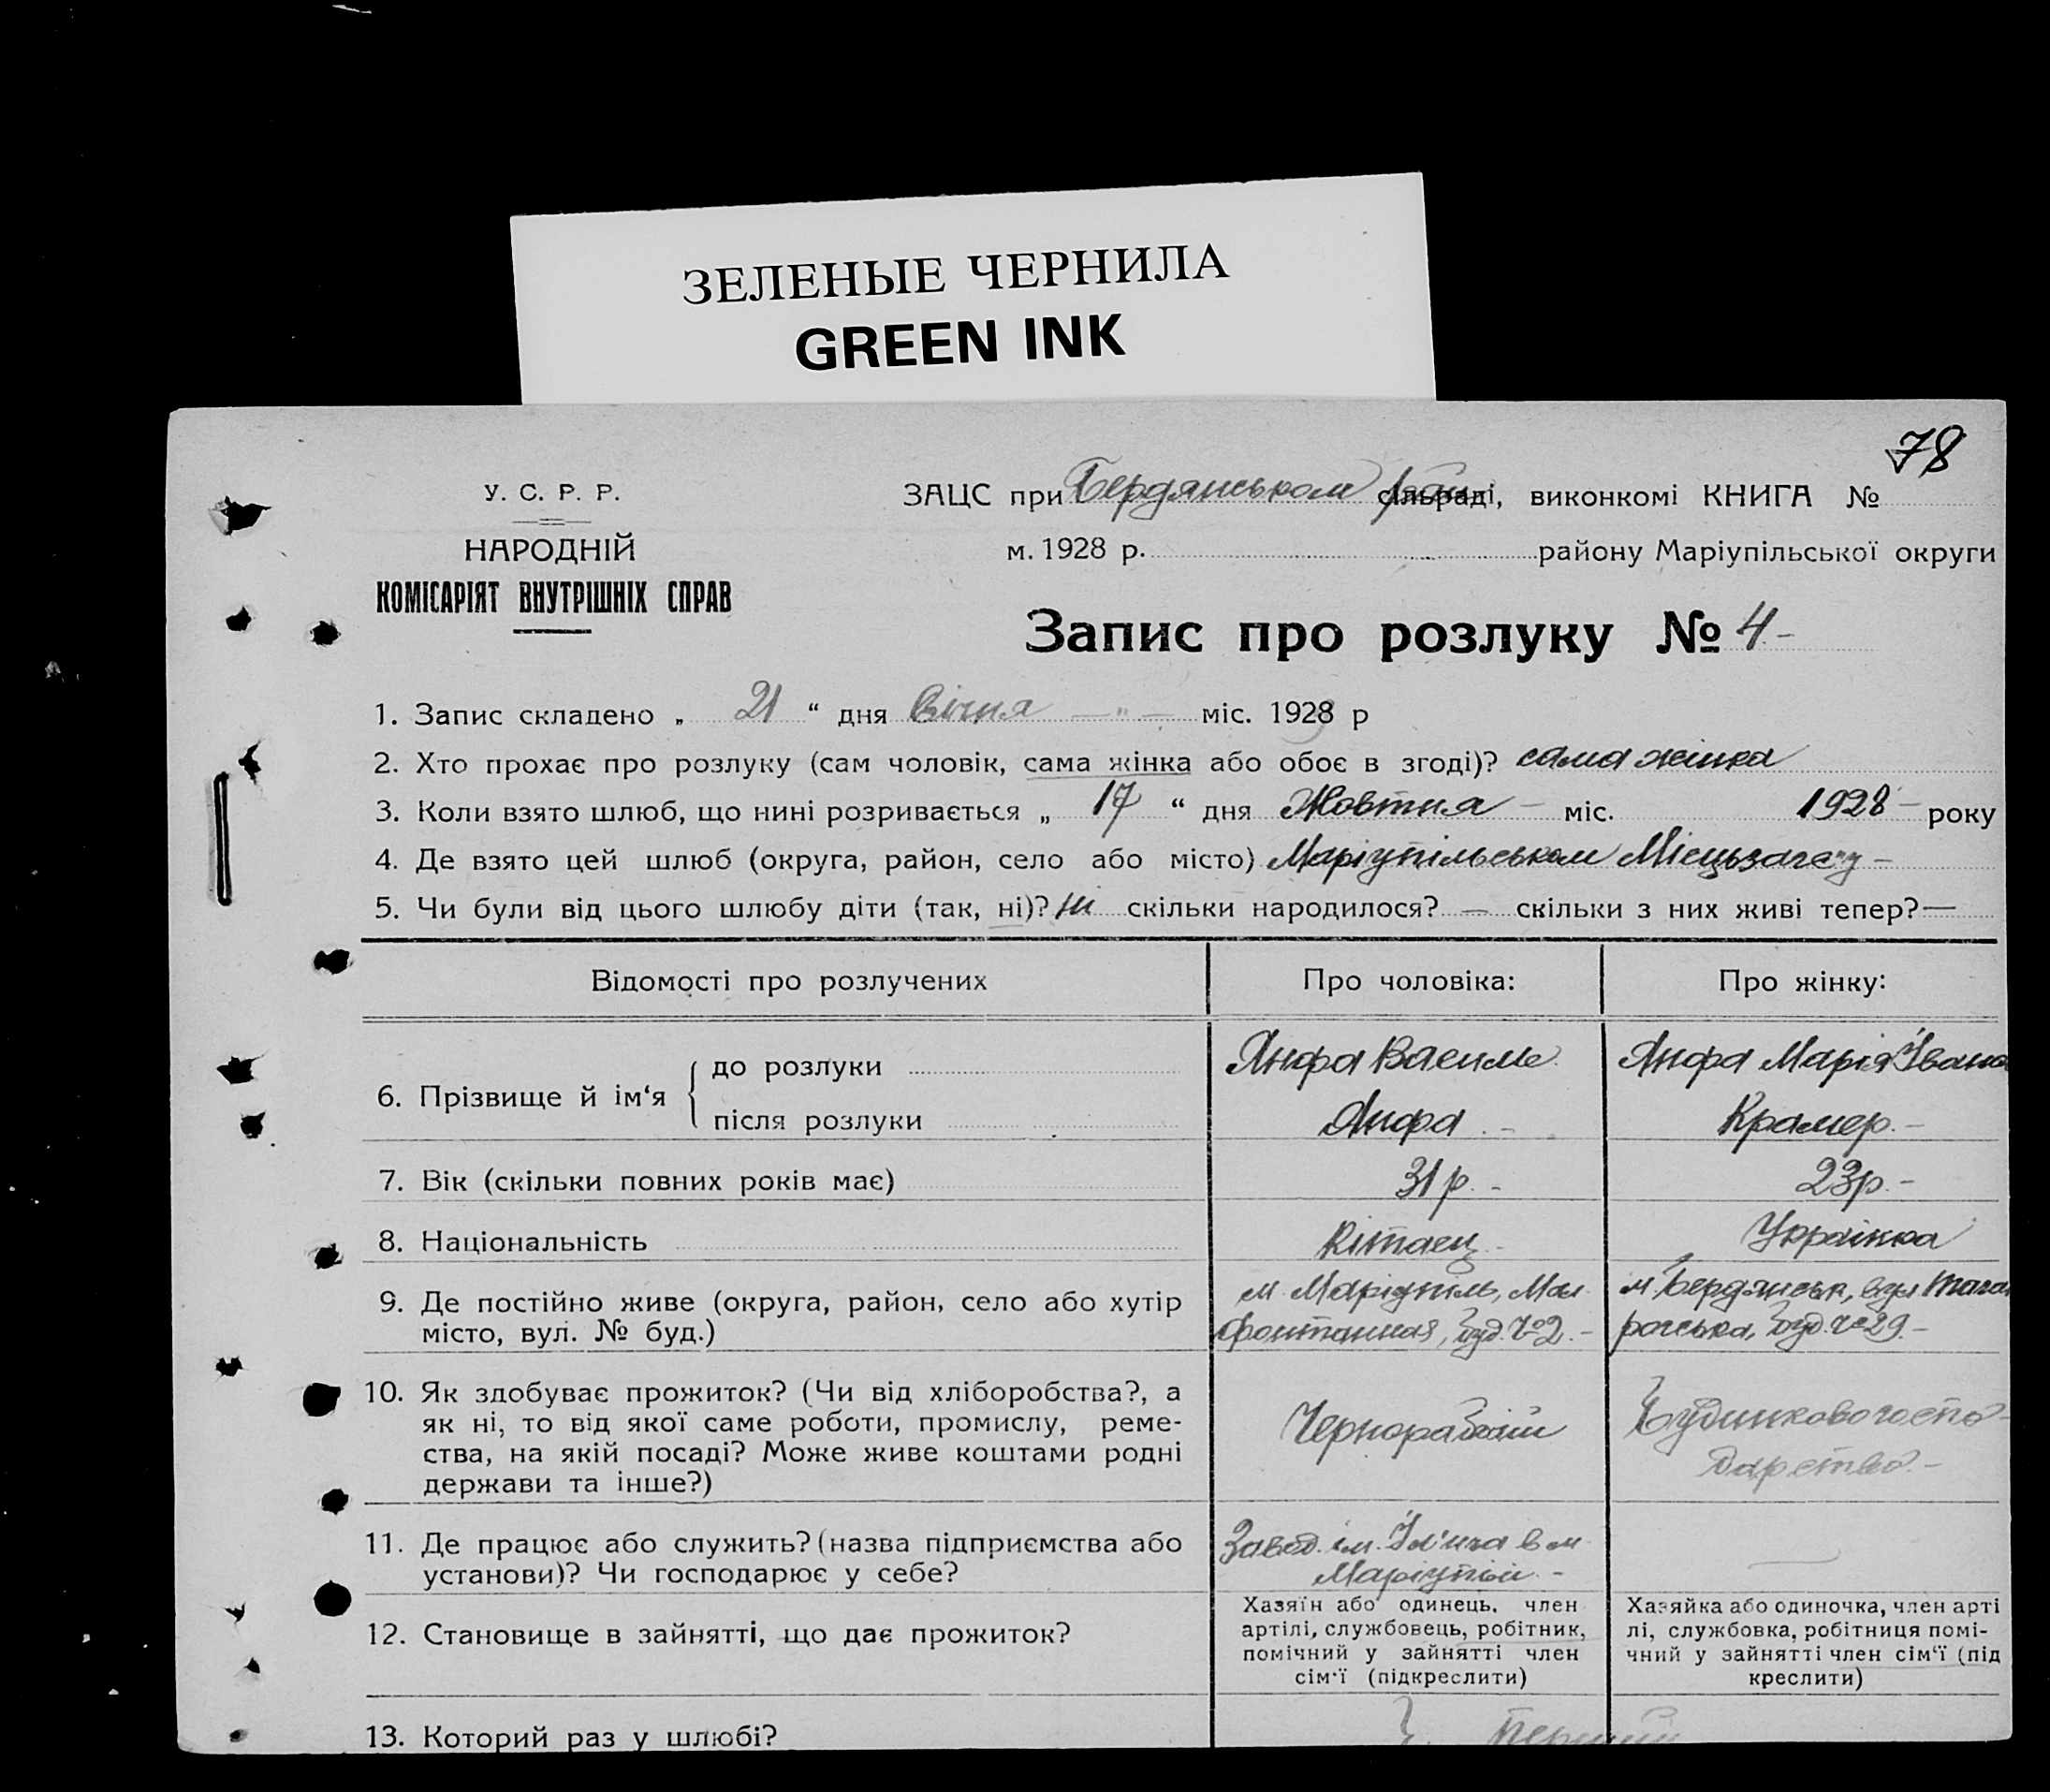 ЗЕЛЕНЫЕ ЧЕРНИЛА
GREEN INK
78
У. С. Р. Р.
НАРОДНІЙ
КОМІСАРІЯТ ВНУТРІШНІХ СПРАВ
ЗАЦС при Бердянськом сільраді, виконкомі КНИГА №
м. 1928 р. району Маріупільської округи
Запис про розлуку № 4-
1. Запис складено „ 21 “ дня Січня — " — міс. 1928 р
2. Хто прохає про розлуку (сам чоловік, сама жінка або обоє в згоді)? сама жінка
3. Коли взято шлюб, що нині розривається „ 17 “ дня Жовтня — міс. 1928 — року
4. Де взято цей шлюб (округа, район, село або місто) Маріупільськом —
5. Чи були від цього шлюбу діти (так, ні)? ні скільки народилося? — скільки з них живі тепер? —
Відомості про розлучених
Про чоловіка:
Про жінку:
6. Прізвище й ім‘я
до розлуки
після розлуки
Янфа Василь
Янфа Марія Івано
Янфа -
Крамер. -
7. Вік (скільки повних років має)
31 р. -
23 р. -
8. Національність
Кітаєц -
Українка
9. Де постійно живе (округа, район, село або хутір
місто, вул. № буд.)
м. Маріупіль, Мал.
Фонтанная, буд. № 2. -
м. Бердянськ, вул Таган
рогська, буд. № 29. -
10. Як здобуває прожиток? (Чи від хліборобства?, а
як ні, то від якої саме роботи, промислу, реме-
ства, на якій посаді? Може живе коштами родні
держави та інше?)
Чернорабочій
Будинково госпо-
дарство. -
11. Де працює або служить? (назва підприємства або
установи)? Чи господарює у себе?
Завод. ім. Іл'іча в м.
Маріупілі. -
—
12. Становище в зайнятті, що дає прожиток?
Хазяїн або одинець, член
артілі, службовець, робітник,
помічний у зайнятті член
сім‘ї (підкреслити)
Хазяйка або одиночка, член арті
лі, службовка, робітниця помі-
чний у зайнятті член сім‘ї (під
креслити)
13. Которий раз у шлюбі?